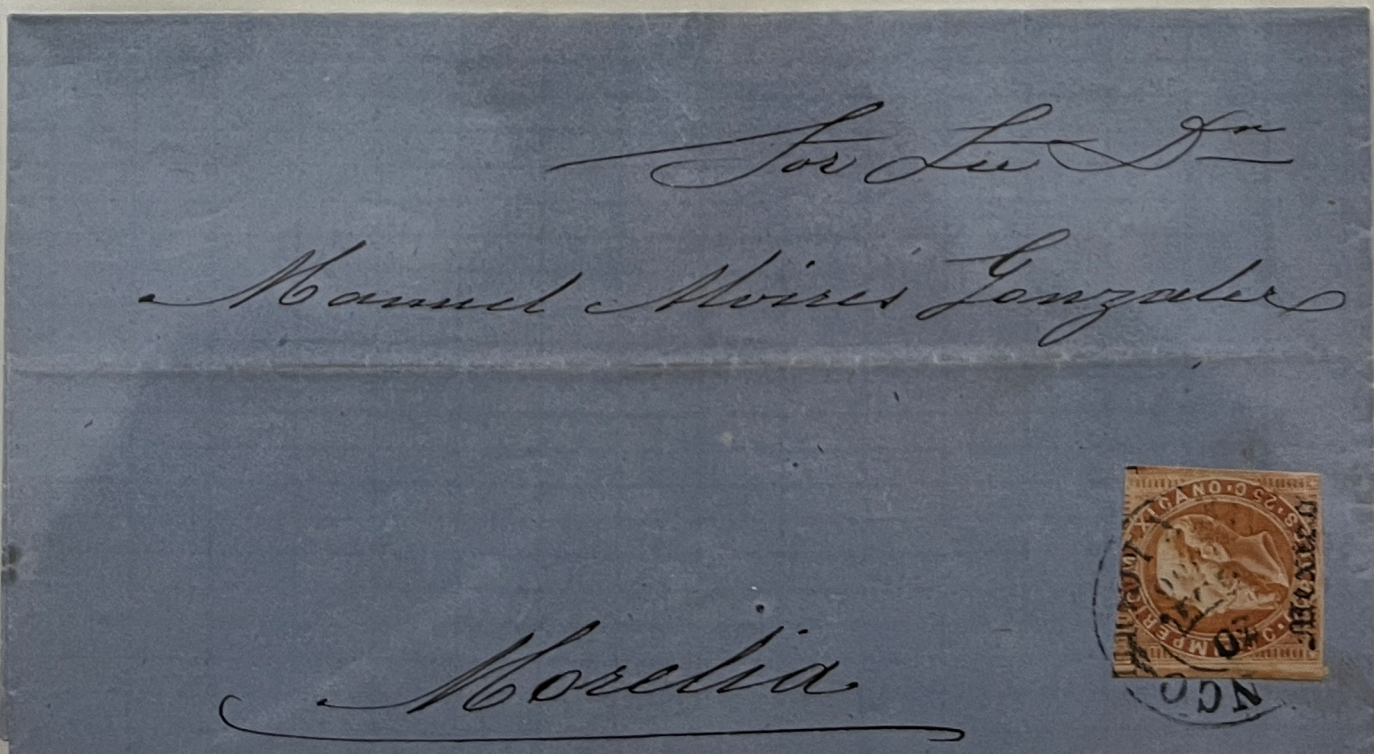 Sor Lic Dn
Manuel Moises Gonzalez
Morelia
IMPERIO MEXICANO
25 C
Mexico